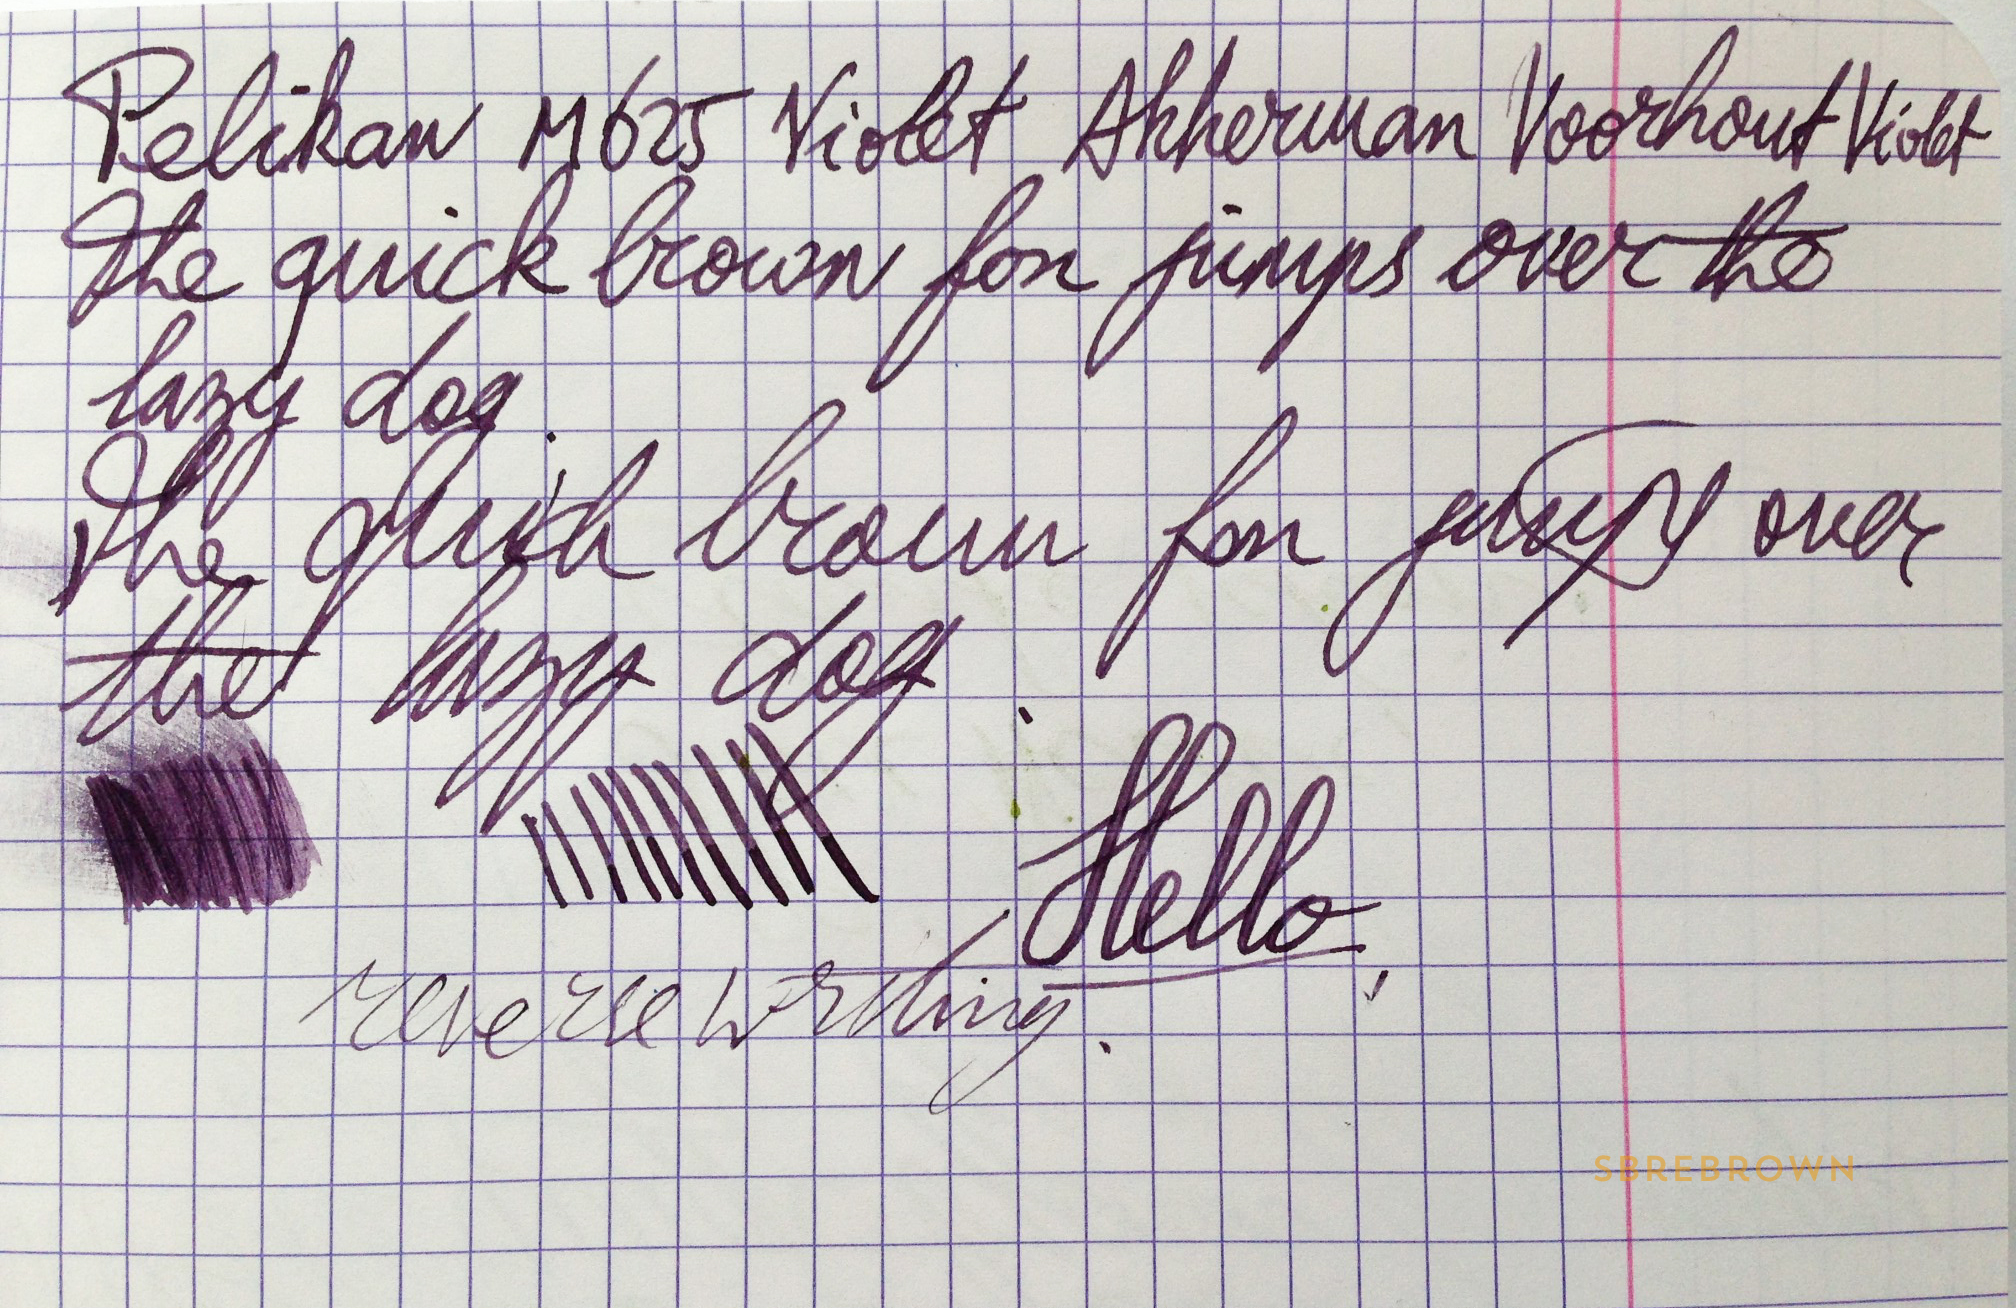 Pelikan M625 Violet Akkerman Voorhout Violet
the quick brown fox jumps over the
lazy dog.
The quick brown fox jumps over
the lazy dog.
Hello.
reverse writing.
SBREBROWN